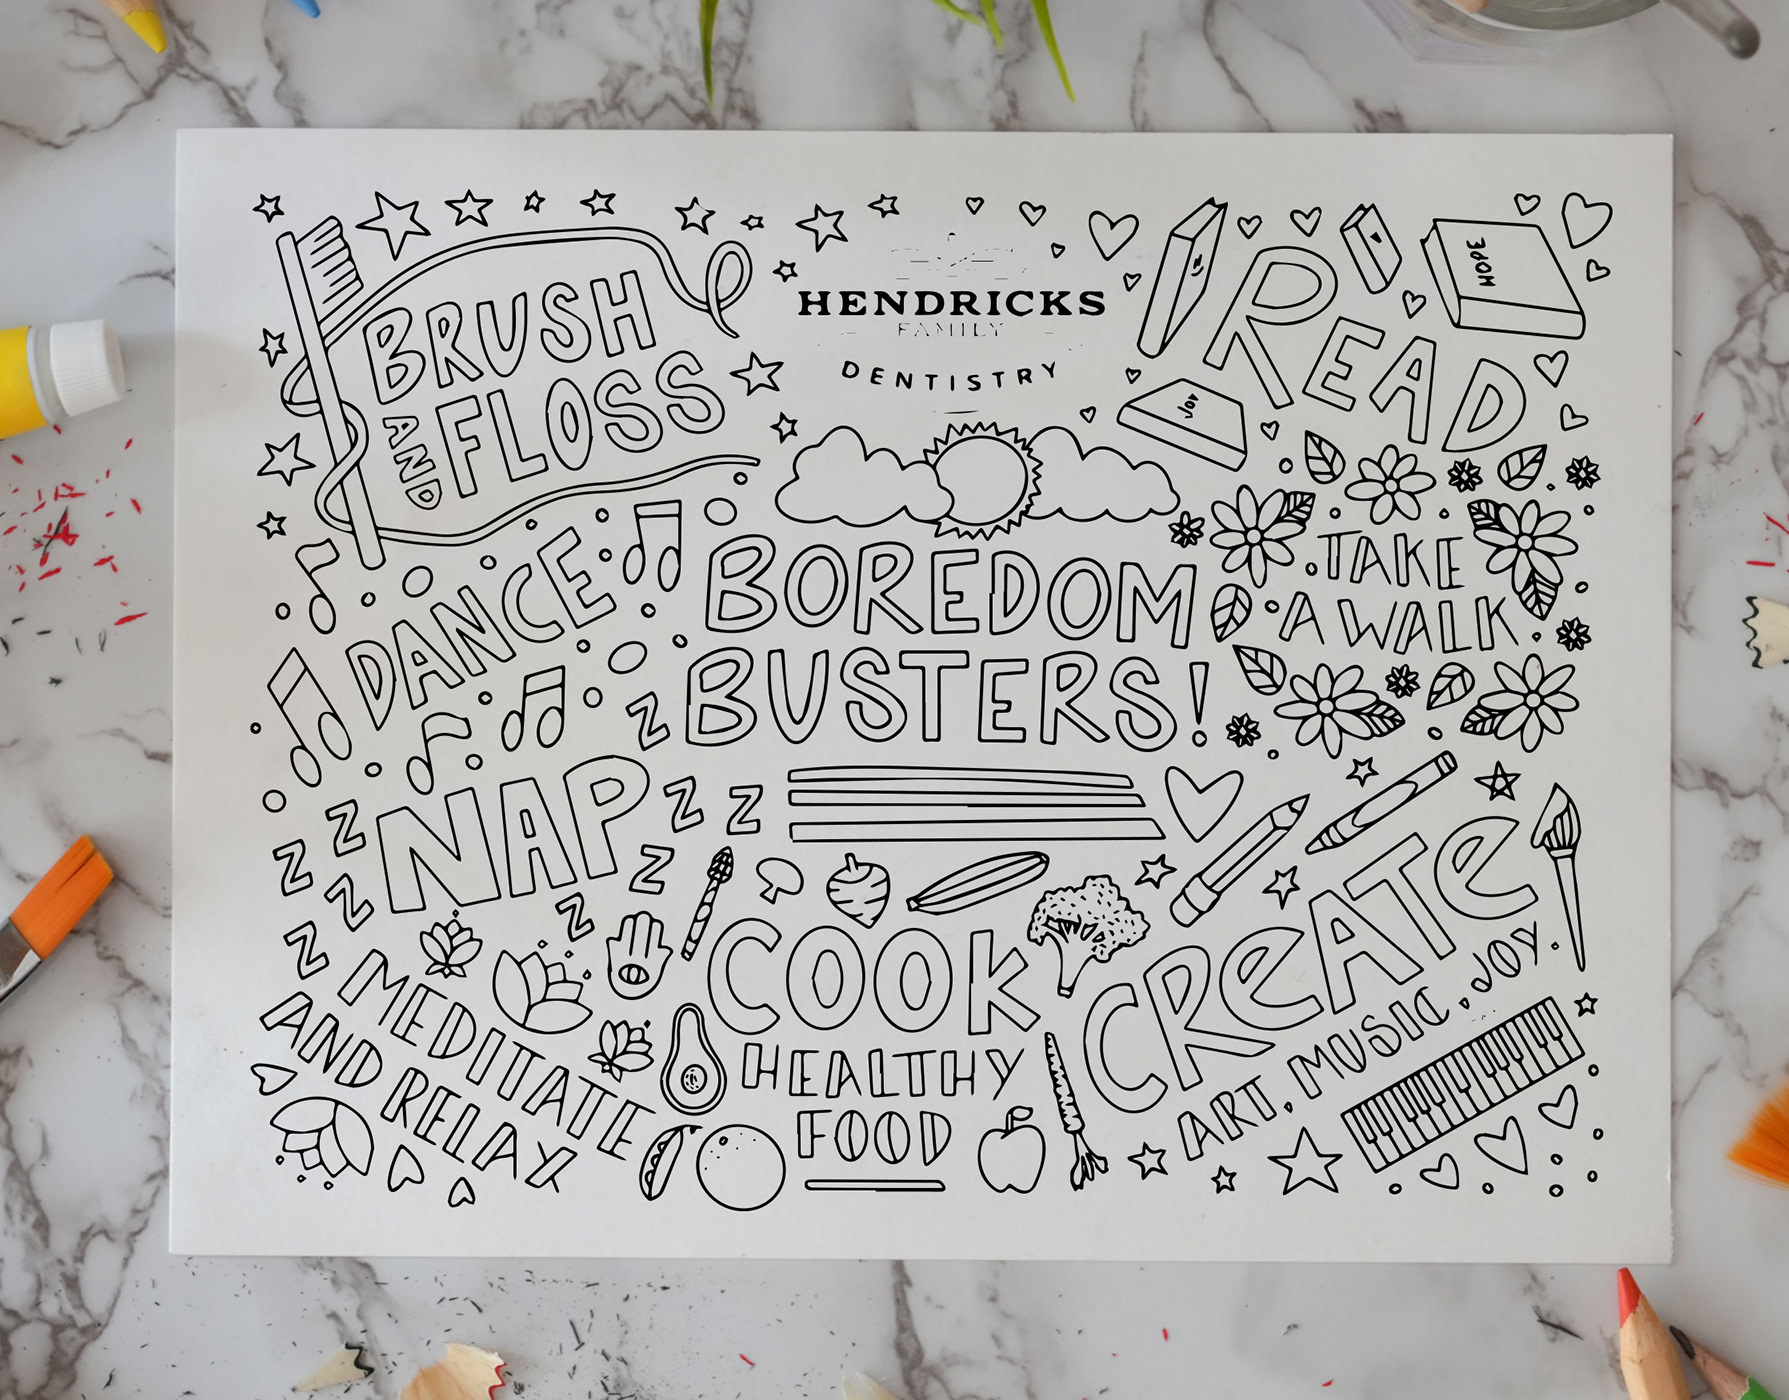 HENDRICKS
FAMILY
DENTISTRY
BRUSH
AND
FLOSS
HOPE
JOY
READ
DANCE
BOREDOM
BUSTERS!
TAKE
A WALK
Z
NAP
Z Z
Z
Z
Z
Z
Z
Z
MEDITATE
AND RELAX
COOK
HEALTHY
FOOD
CREATE
ART, MUSIC, JOY.